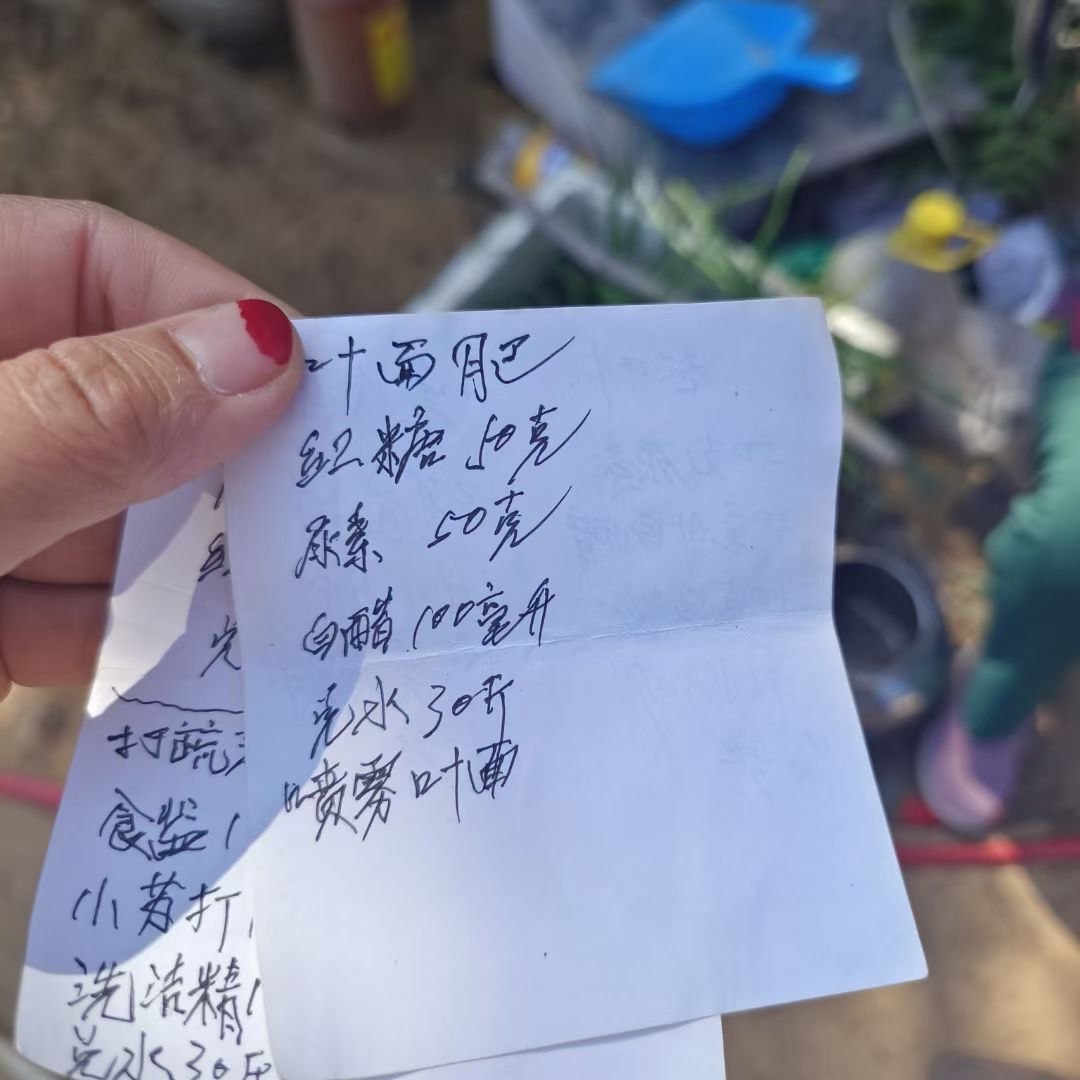 叶面肥
红糖 50克
尿素 50克
白醋 100毫升
兑水30斤
喷雾叶面
打疏
食盐 1
小苏打
洗洁精1
兑水30斤